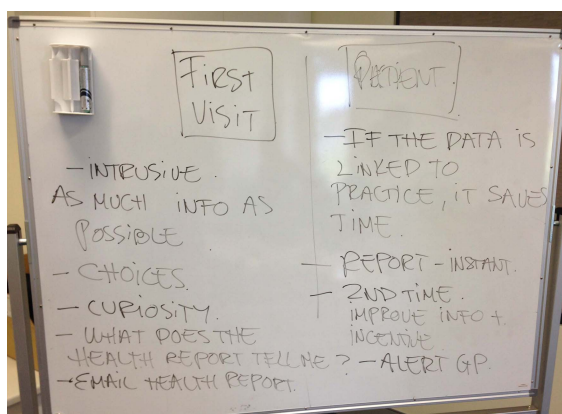 FIRST
VISIT
- INTRUSIVE.
AS MUCH INFO AS
POSSIBLE
- CHOICES.
- CURIOSITY.
- WHAT DOES THE
HEALTH REPORT TELL ME?
- EMAIL HEALTH REPORT.
PATIENT.
- IF THE DATA IS
LINKED TO
PRACTICE, IT SAVES
TIME.
- REPORT - INSTANT.
- 2ND TIME.
IMPROVE INFO +
INCENTIVE
- ALERT GP.